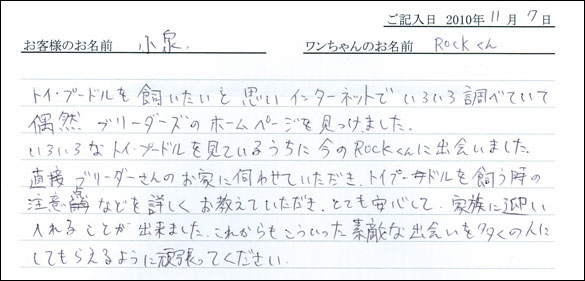 ご記入日 2010年 11月 7日
お客様のお名前 小泉. ワンちゃんのお名前 ROCKくん
トイ・プードルを飼いたいと思いインターネットでいろいろ調べていて
偶然 ブリーダーズのホームページを見つけました.
いろいろなトイ・プードルを見ているうちに今のROCKくんに出会いました.
直接ブリーダーさんのお家に伺わせていただき、トイプードルを飼う時の
注意点などを詳しくお教えていただき、とても安心して、家族に迎い
入れることが出来ました.これからもこういった素敵な出会いを多くの人に
してもらえるように頑張ってください.